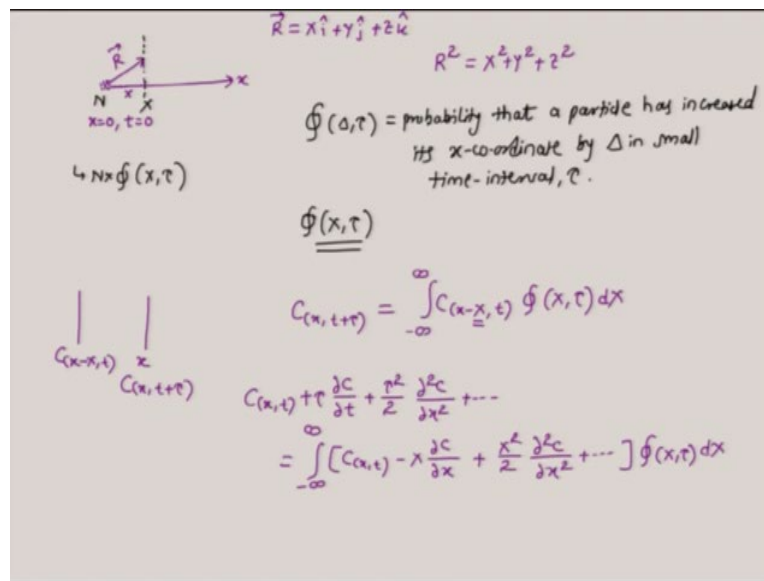 R⃗ = xî + yĵ + zk̂
R² = x² + y² + z²
R⃗
x
x
N
X
x=0, t=0
∮(Δ,τ) = probability that a particle has increased
its x-co-ordinate by Δ in small
time-interval, τ.
↳ N×∮(X,τ)
∮(X,τ)
C(x,t+τ) = ∫_{-∞}^{∞} C(x-X,t) ∮(X,τ) dX
C(x-X,t)
x
C(x,t+τ)
C(x,t) + τ ∂C/∂t + τ²/2 ∂²C/∂x² + ····
= ∫_{-∞}^{∞} [C(x,t) - X ∂C/∂x + X²/2 ∂²C/∂x² + ···· ] ∮(X,τ) dX